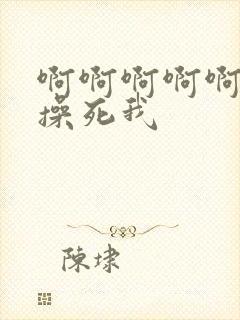 啊啊啊啊啊
操死我
陳埭